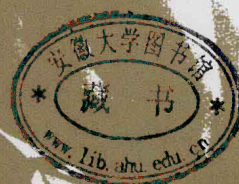 安徽大学图书馆
藏 书
www.lib.ahu.edu.cn